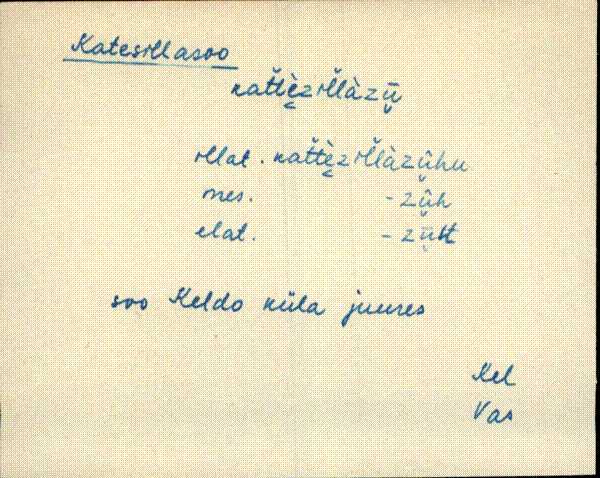 Katesillasoo
kat̆t̆ę̀zil̆l̆àzū̬
illat. kat̆t̆ę̀zil̆l̆àzû̬hu
ines. -zû̬h
elat. -zū̬st
soo Keldo küla juures
Kel
Vas